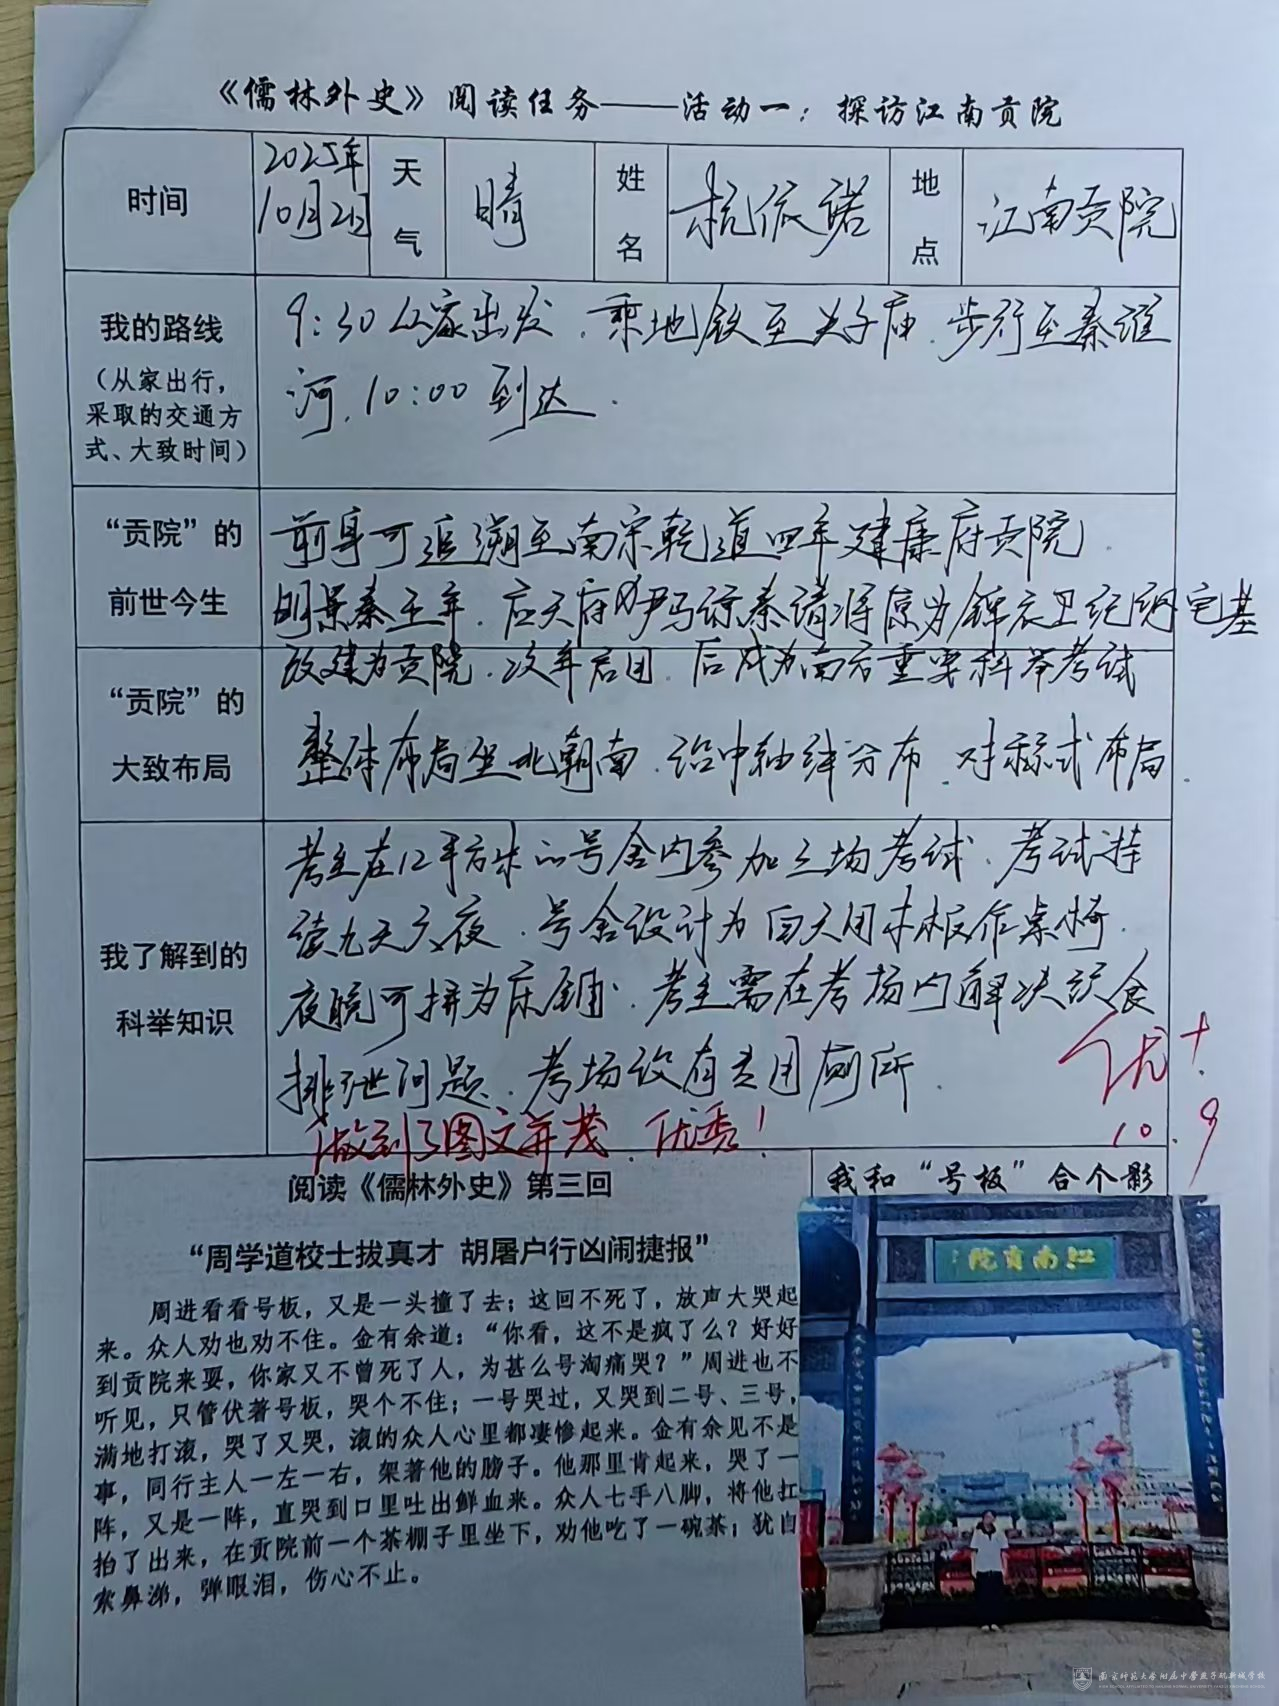 《儒林外史》阅读任务——活动一：探访江南贡院
时间
2025年
10月2日
天
气
晴
姓
名
杭依诺
地
点
江南贡院
我的路线
（从家出行，
采取的交通方
式、大致时间）
9:30从家出发，乘地铁至夫子庙，步行至秦淮
河，10:00到达．
“贡院”的
前世今生
前身可追溯至南宋乾道四年建康府贡院．
明景泰五年，应天府府尹马谅奏请将原为锦衣卫纪纲宅基
改建为贡院，次年启用，后成为南方重要科举考试
“贡院”的
大致布局
整体布局坐北朝南，沿中轴线分布，对称式布局．
我了解到的
科举知识
考生在12平方米的号舍内参加三场考试，考试持
续九天六夜，号舍设计为白天用木板作桌椅，
夜晚可拼为床铺，考生需在考场内解决饮食
排泄问题，考场设有专用厕所．
优+
10.9
做到了图文并茂，优秀！
阅读《儒林外史》第三回
“周学道校士拔真才 胡屠户行凶闹捷报”
周进看看号板，又是一头撞了去；这回不死了，放声大哭起
来。众人劝也劝不住。金有余道：“你看，这不是疯了么？好好
到贡院来耍，你家又不曾死了人，为甚么号淘痛哭？”周进也不
听见，只管伏著号板，哭个不住；一号哭过，又哭到二号、三号，
满地打滚，哭了又哭，滚的众人心里都凄惨起来。金有余见不是
事，同行主人一左一右，架著他的膀子。他那里肯起来，哭了一
阵，又是一阵，直哭到口里吐出鲜血来。众人七手八脚，将他扛
抬了出来，在贡院前一个茶棚子里坐下，劝他吃了一碗茶；犹自
索鼻涕，弹眼泪，伤心不止。
我和“号板”合个影
江南贡院
南京师范大学附属中学燕子矶新城学校